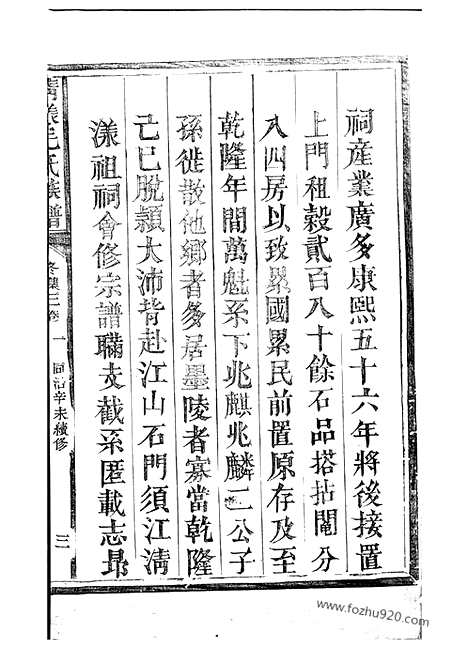 祠産業廣多康熙五十六年將後接置
上門租穀貳百八十餘石品搭拈鬮分
入四房以致累國累民前置原存及至
乾隆年間萬魁系下兆麒兆麟二公子
孫徙散他鄉者多居墨陵者寡當乾隆
己巳脫頴大沛背赴江山石門須江清
漾祖祠會修宗譜聮支截系匿載志昻
清漾毛氏族譜
冬集三卷 一 同治辛未續修
三
www.fozhu920.com